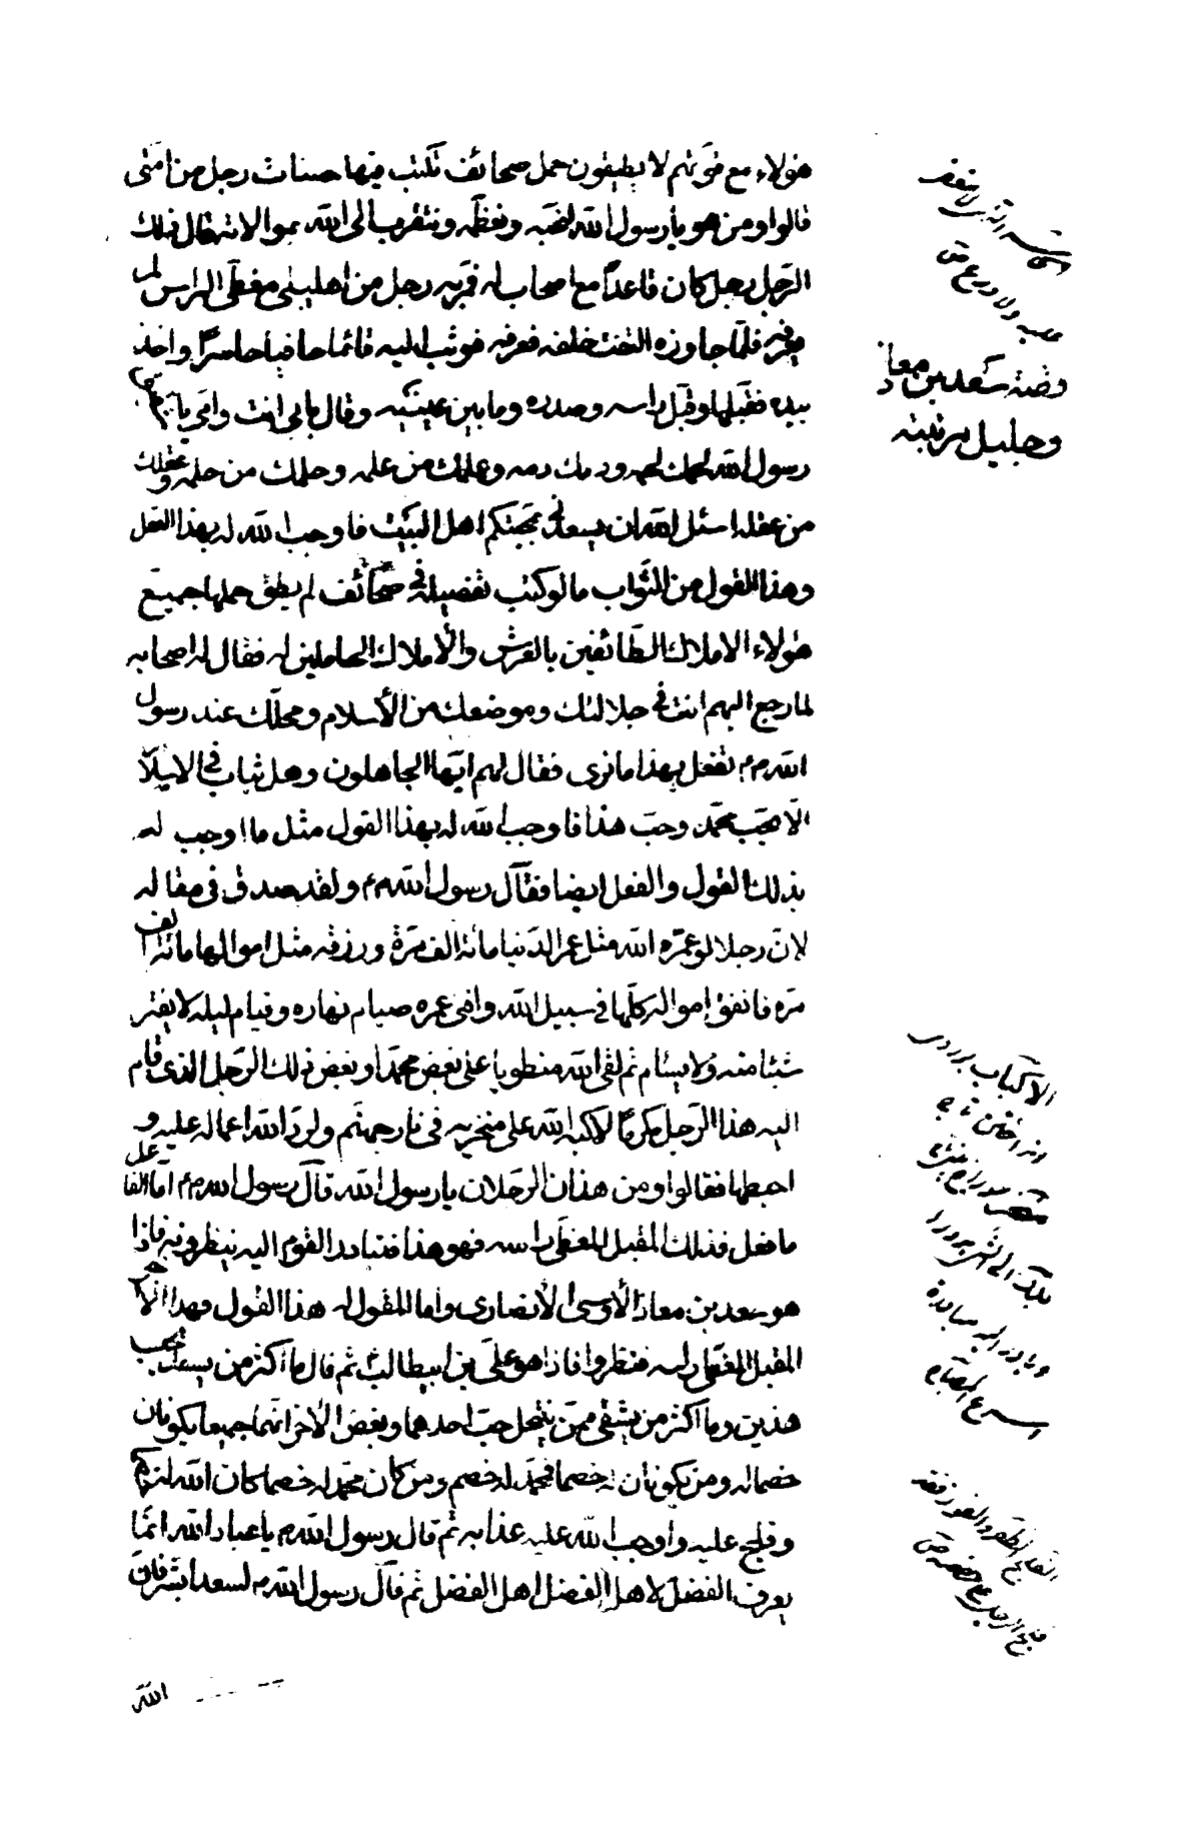 هؤلاء مع قوتهم لا يطيقون حمل صحائف تكتب فيها حسنات رجل من امتى
قالوا ومن هو يا رسول الله لنحبه ونعظمه ونتقرب الى الله بموالاته قال ذلك
الرجل رجل كان قاعدا مع اصحاب له فمر به رجل من اهل بيتى مغطى الراس لم
يعرفه فلما جاوزه التفت خلفه فعرفه فوثب اليه قائما حافيا حاسرا واخذ
بيده فقبلها وقبل راسه وصدره وما بين عينيه وقال بابى انت وامى يا
رسول الله لحمك لحمه ودمك دمه وعلمك من علمه وحلمك من حلمه وعقلك
من عقله اسئل الله ان يسعدنى بمحبتكم اهل البيت فاوجب الله له بهذا الفعل
وهذا القول من الثواب ما لو كتب تفصيله فى صحائف لم يطق حملها جميع
هؤلاء الاملاك الطائفين بالعرش والاملاك الحاملين له فقال له اصحابه
لما رجع اليهم انت فى جلالتك وموضعك من الاسلام ومحلك عند رسول
الله ص تفعل بهذا ما نرى فقال لهم ايها الجاهلون وهل يثاب فى الاسلام
الا بحب محمد وحب هذا فاوجب الله له بهذا القول مثل ما اوجب له
بذلك القول والفعل ايضا فقال رسول الله ص ولقد صدق فى مقاله
لان رجلا لو عمره الله مثل عمر الدنيا مائة الف مرة ورزقه مثل اموالها مائة الف
مره فانفق امواله كلها فى سبيل الله وافنى عمره صيام نهاره وقيام ليله لا يفتر
شيئا منه ولا يسئام ثم لقى الله منطويا على بغض محمد او بغض ذلك الرجل الذى قام
اليه هذا الرجل مكرما الا كبه الله على منخريه فى نار جهنم ولرد الله اعماله عليه و
احبطها فقالوا ومن هذان الرجلان يا رسول الله قال رسول الله ص اما الفاعل
ما فعل فذلك المقبل المغطى راسه فهو هذا فتبادر القوم اليه ينظرونه فاذا
هو سعد بن معاذ الأوسى الأنصارى واما المقول له هذا القول فهذا الاخر
المقبل المغطى راسه فنظروا فاذا هو على بن ابيطالب ثم قال ما اكثر من يسعد بحب
هذين وما اكثر من يشقى ممن ينتحل حب احدهما وبغض الاخر انهما جميعا يكونان
خصماله ومن يكونان له خصما فمحمد له خصم ومن كان محمد له خصما كان الله له خصما
وفلج عليه واوجب الله عليه عذابه ثم قال رسول الله ص يا عباد الله انما
يعرف الفضل لاهل الفضل اهل الفضل ثم قال رسول الله ص لسعد ابشر فان
الله
وصفة سعد بن معاذ
وجليل مرتبته